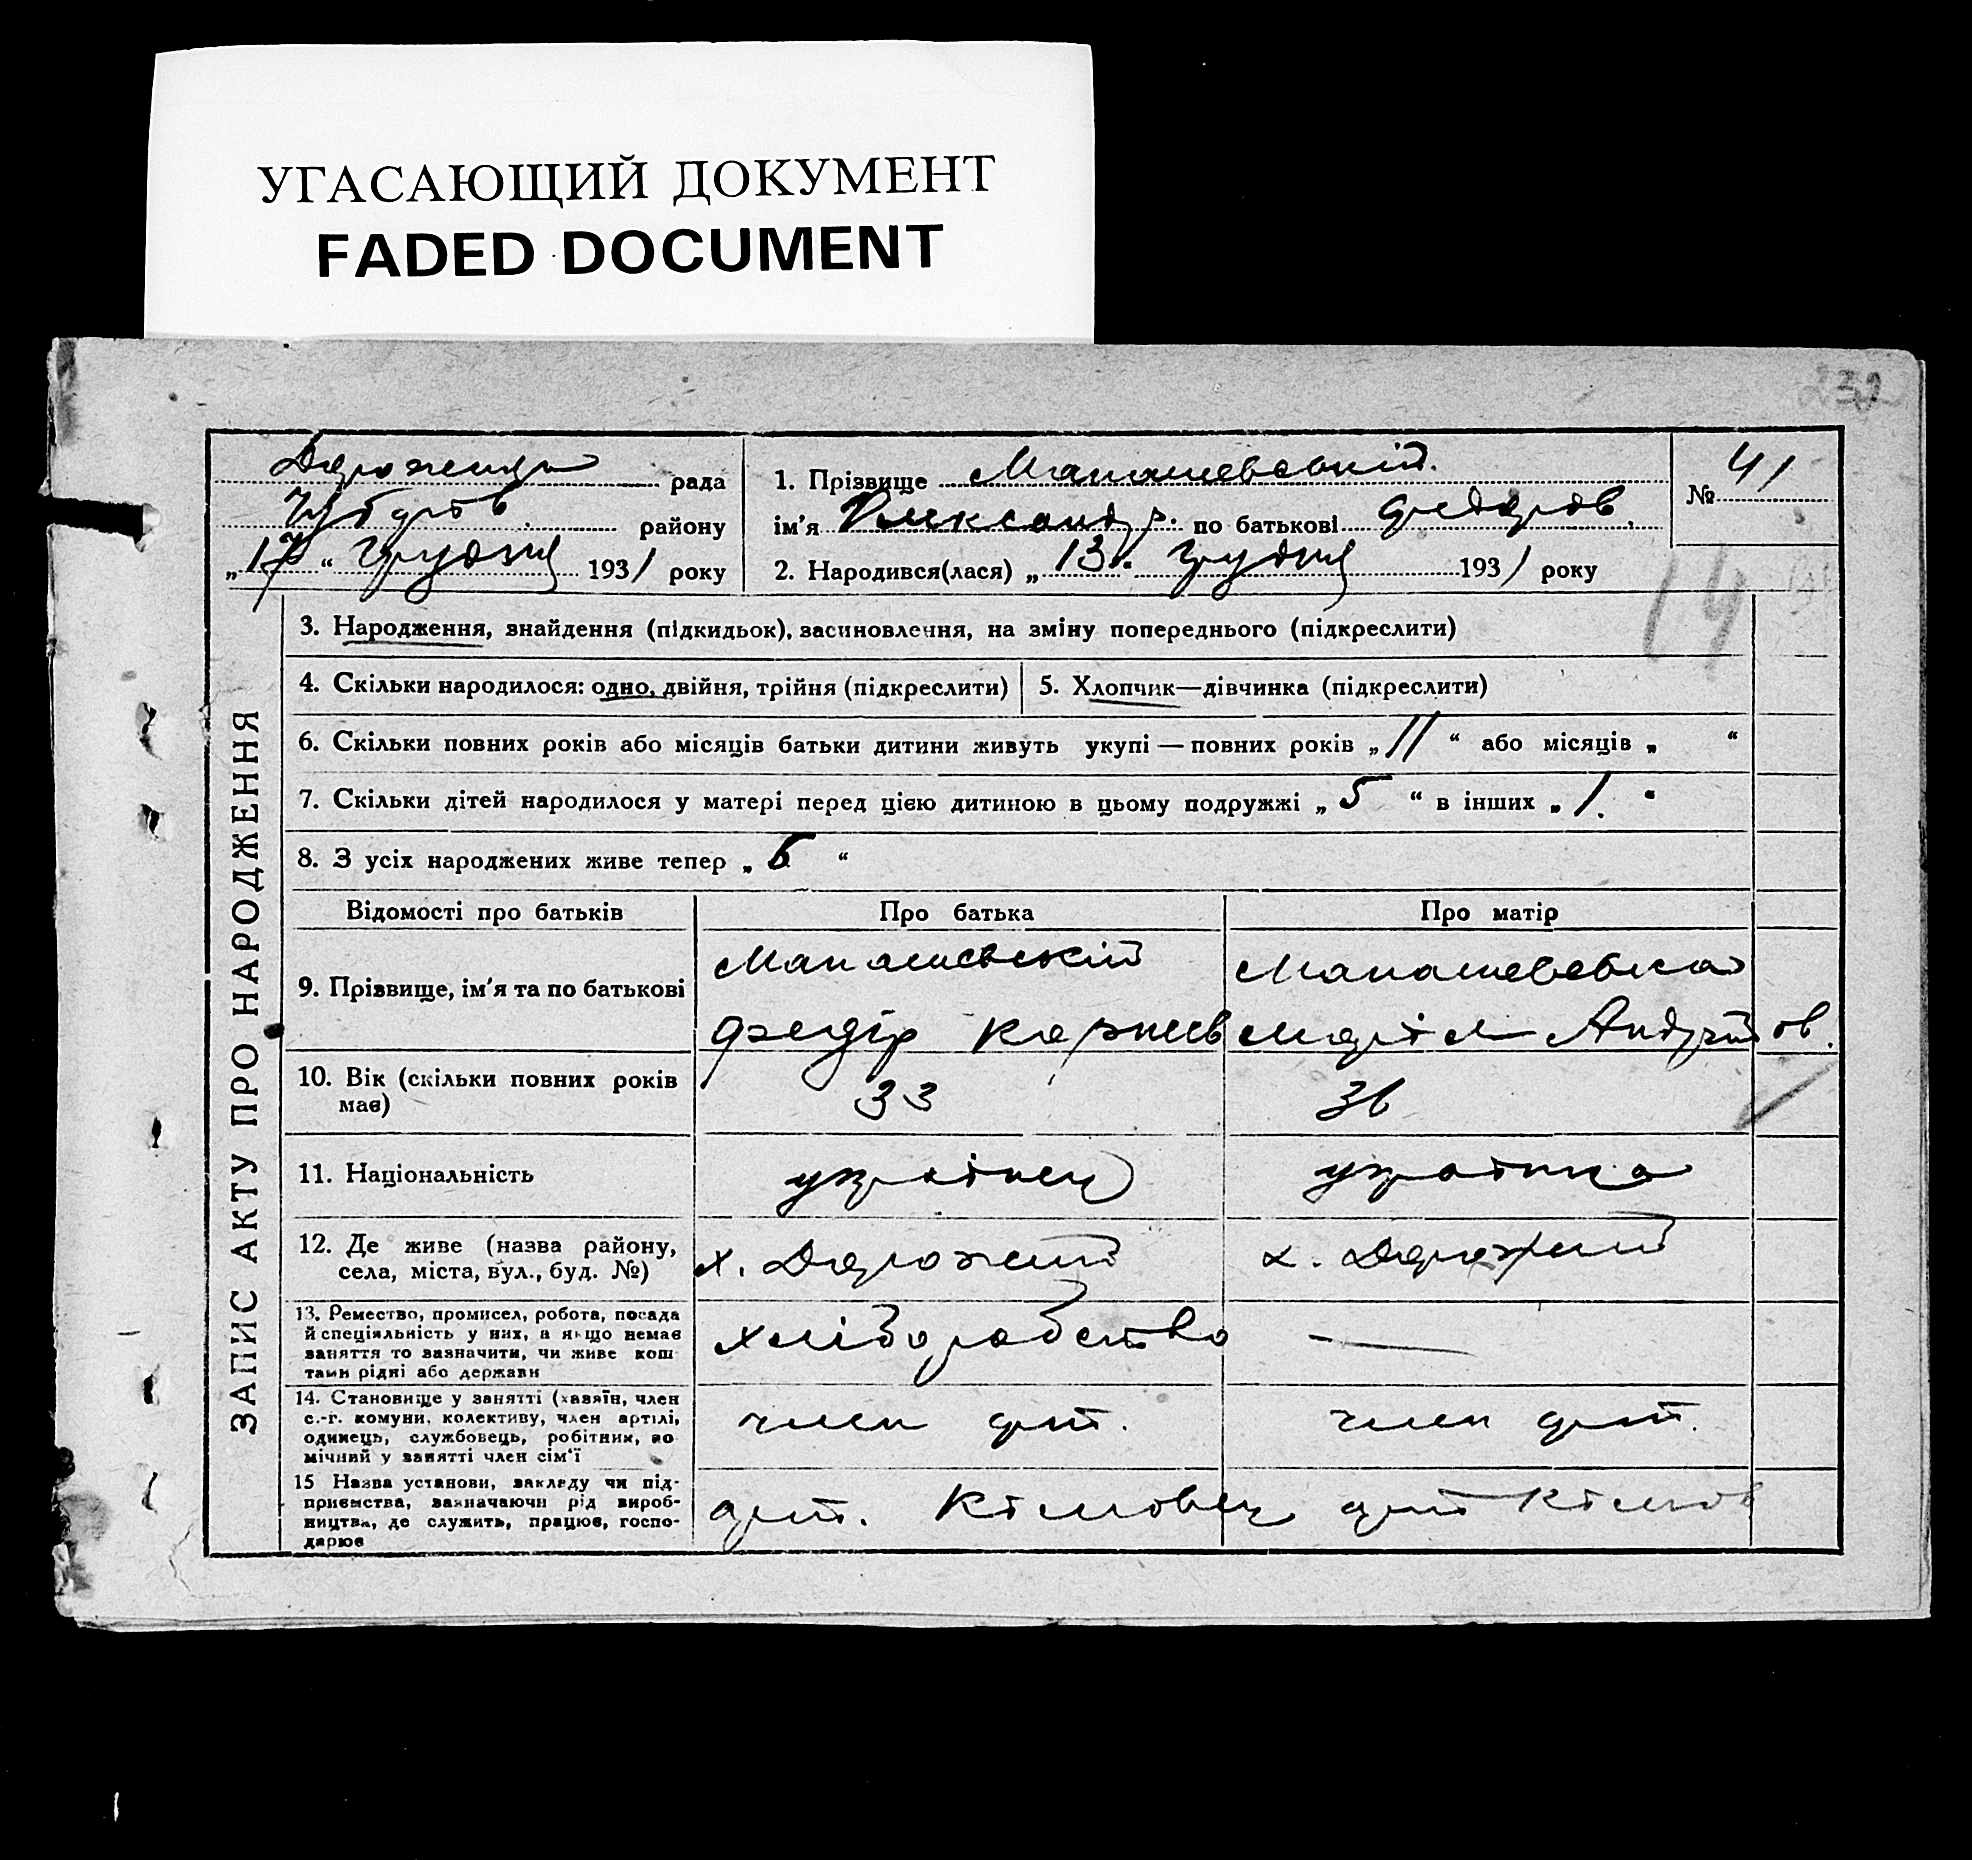 УГАСАЮЩИЙ ДОКУМЕНТ
FADED DOCUMENT
232
рада
району
„17“ Грудня 1931 року
1. Прізвище Манашевській.
ім'я Александр. по батькові Федоров.
2. Народився(лася) „13“. Грудня 1931 року
№ 41
14
ЗАПИС АКТУ ПРО НАРОДЖЕННЯ
3. Народження, знайдення (підкидьок), засиновлення, на зміну попереднього (підкреслити)
4. Скільки народилося: одно, двійня, трійня (підкреслити)
5. Хлопчик—дівчинка (підкреслити)
6. Скільки повних років або місяців батьки дитини живуть укупі — повних років „11“ або місяців „ “
7. Скільки дітей народилося у матері перед цією дитиною в цьому подружжі „5“ в інших „1.“
8. З усіх народжених живе тепер „6“
Відомості про батьків
Про батька
Про матір
9. Прізвище, ім'я та по батькові
Манашевській
Федір Карпов
Манашевська
Марія Андрійов.
10. Вік (скільки повних років
має)
33
36
11. Національність
українец
українка
12. Де живе (назва району,
села, міста, вул., буд. №)
х. Дорожній
х. Дорожний
13. Ремество, промисел, робота, посада
й спеціяльність у них, а якщо немає
заняття то зазначити, чи живе кош
тами рідні або держави
хліборобство
—
14. Становище у занятті (хазяїн, член
с.-г. комуни, колективу, член артілі,
одинець, службовець, робітник, по
мічний у занятті член сім'ї
член арт.
член арт.
15 Назва установи, закладу чи під-
приємства, зазначаючи рід вироб-
ництва, де служить, працює, госпо-
дарює
арт.
арт